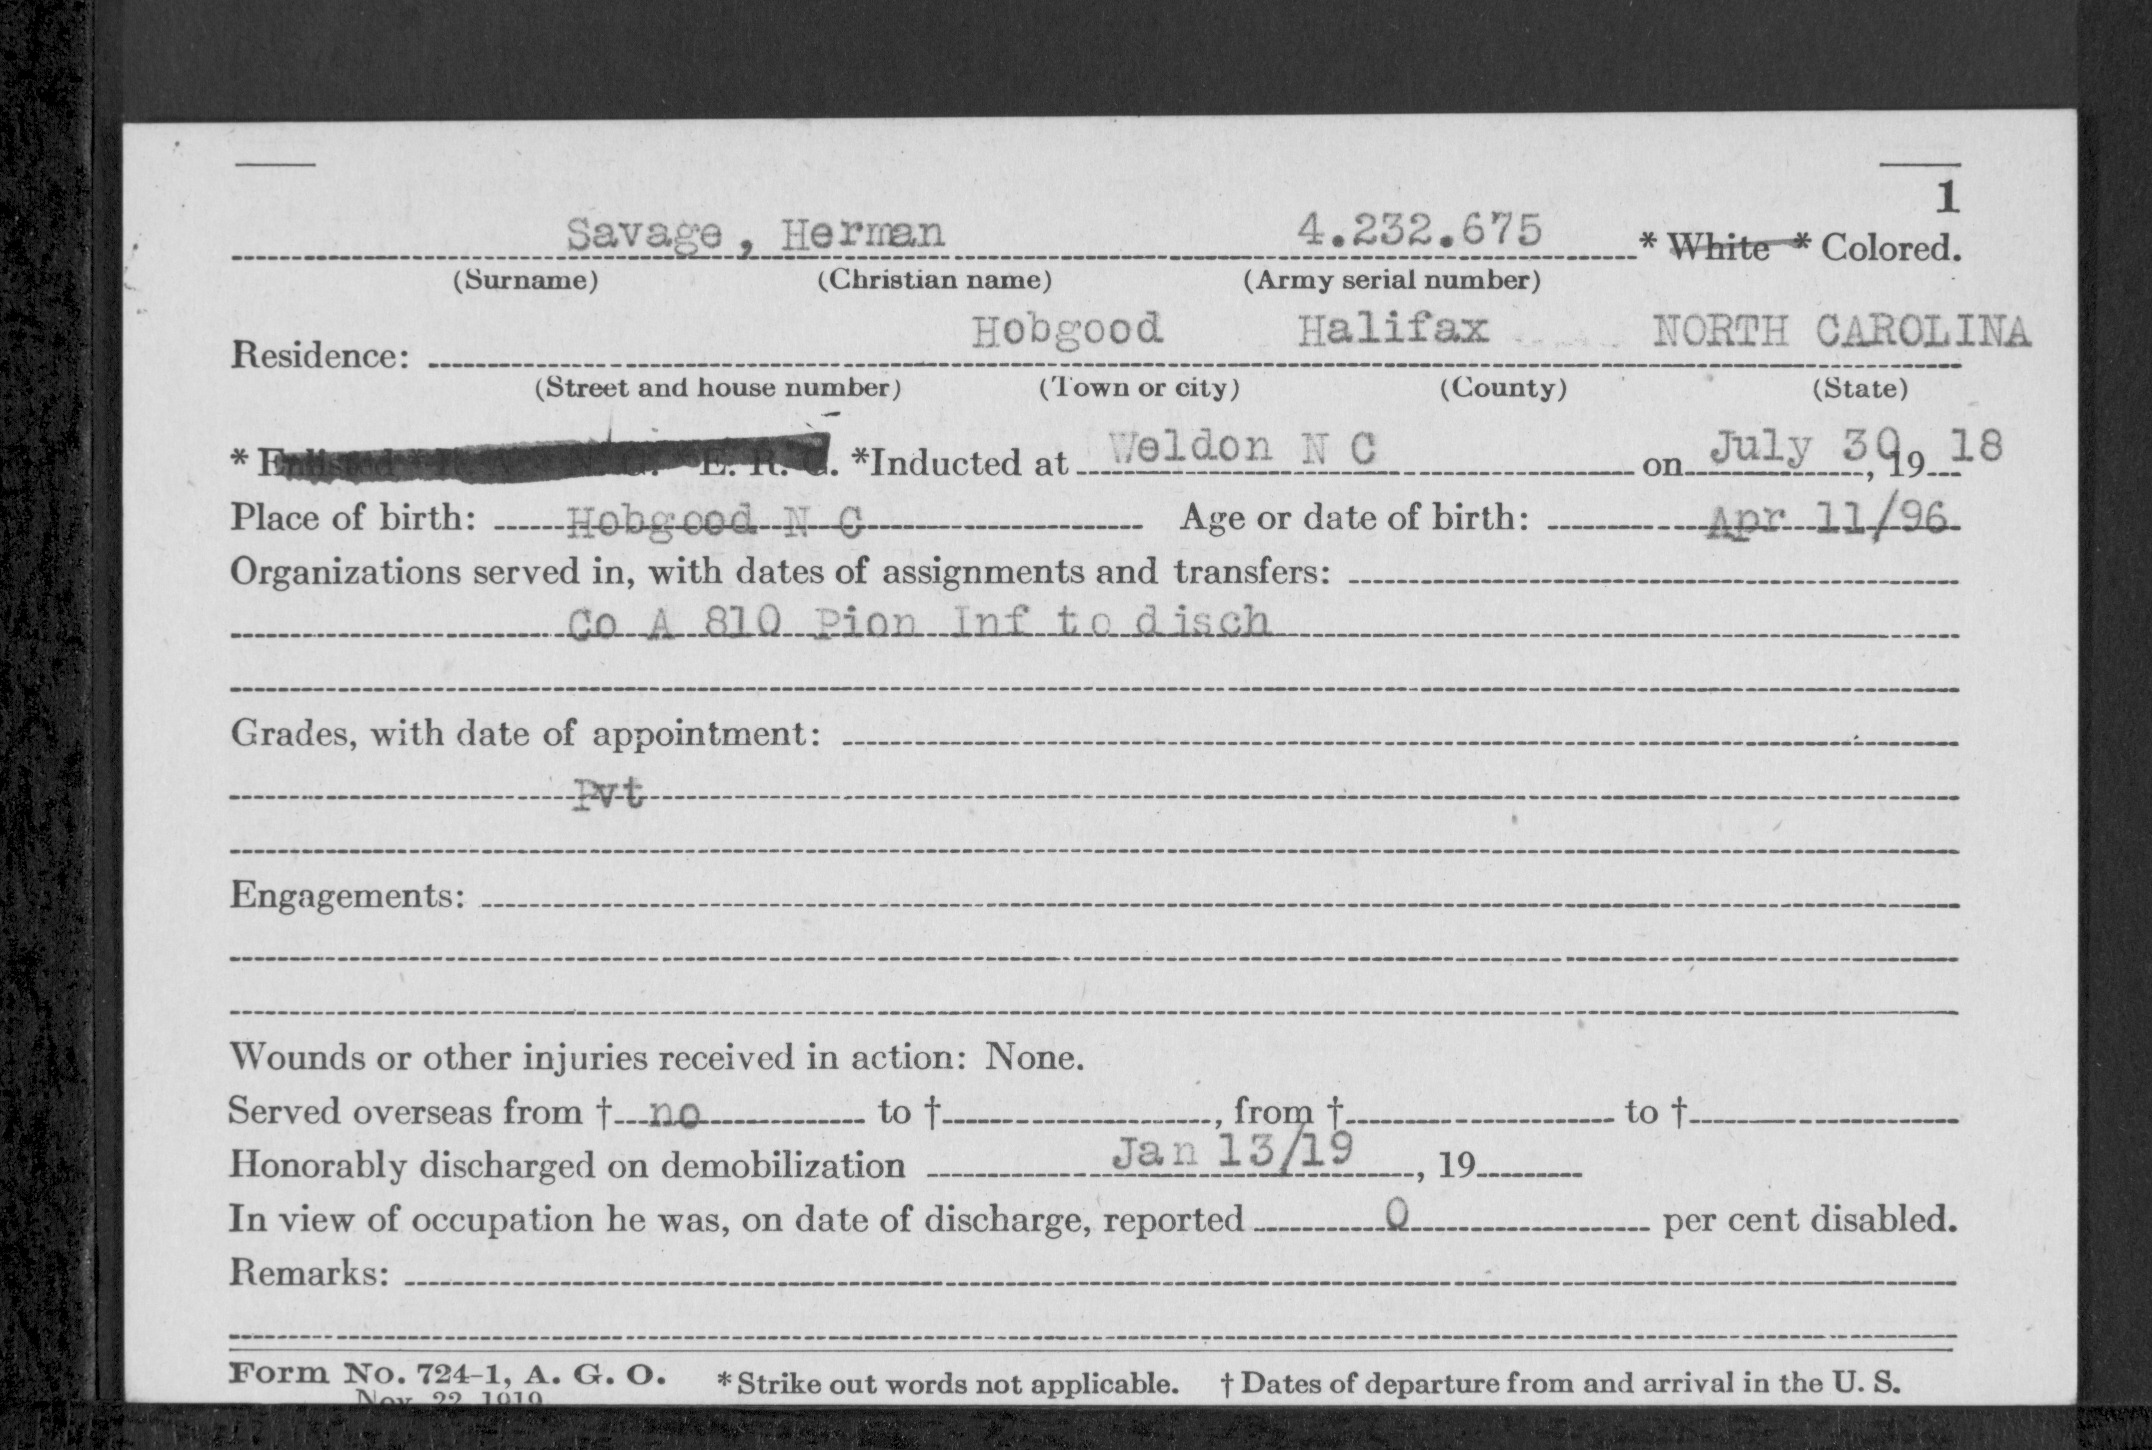 1
Savage, Herman 4.232.675 * White * Colored.
(Surname) (Christian name) (Army serial number)
Residence: Hobgood Halifax NORTH CAROLINA
(Street and house number) (Town or city) (County) (State)
* Enlisted * R. A. N. G. E. R. C. *Inducted at Weldon N C on July 30, 1918
Place of birth: Hobgood N C Age or date of birth: Apr 11/96
Organizations served in, with dates of assignments and transfers:
Co A 810 Pion Inf to disch
Grades, with date of appointment:
Pvt
Engagements:
Wounds or other injuries received in action: None.
Served overseas from † no to † , from † to †
Honorably discharged on demobilization Jan 13/19, 19
In view of occupation he was, on date of discharge, reported 0 per cent disabled.
Remarks:
Form No. 724-1, A. G. O. * Strike out words not applicable. † Dates of departure from and arrival in the U. S.
Nov. 22, 1919